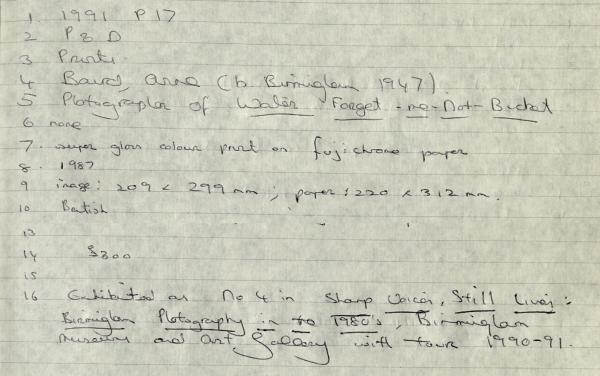 1 1991 P17
2 P & D
3 Prints
4 Baird, Anne (b. Birmingham 1947).
5 Photographer of Water Forget-me-Not-Bucket
6 none
7. super gloss colour print on fujichrome paper
8. 1987
9 image: 209 x 299 mm; paper: 220 x 312 mm.
10 British
13
14 £300
15
16 Exhibited as No 4 in Sharp Voices, Still Lives:
Birmingham Photography in the 1980's, Birmingham
Museums and Art Gallery with tour 1990-91.